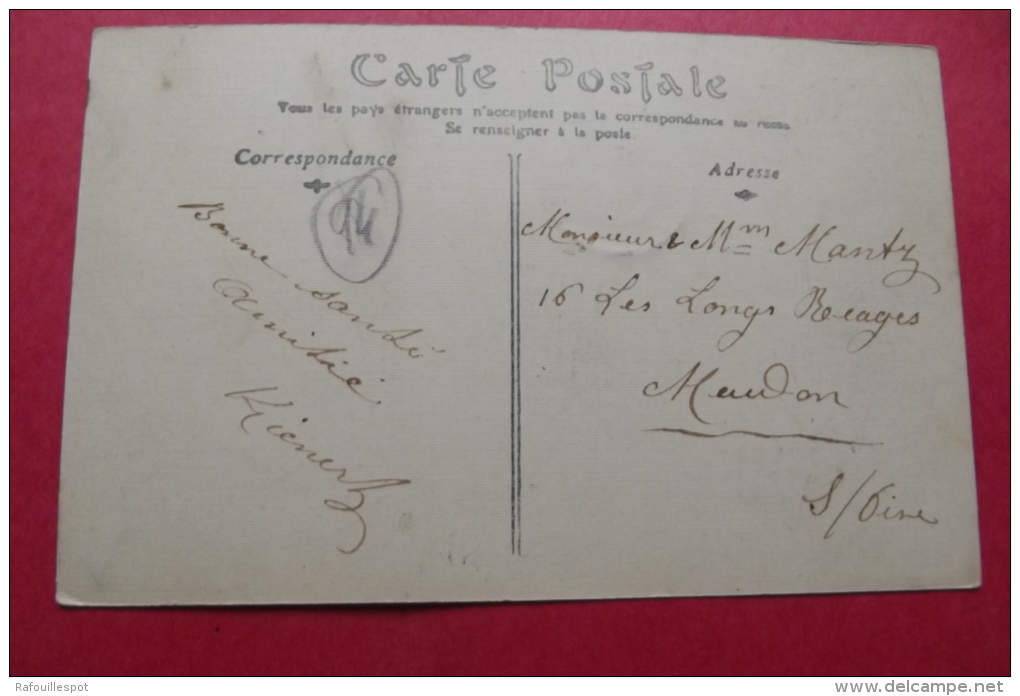 Carte Postale
Tous les pays étrangers n'acceptent pas la correspondance au recto.
Se renseigner à la poste.
Correspondance
94
Bonne santé
Amitié
Kienertz
Adresse
Monsieur & Mm Mantz
16 Les Longs Reages
Meudon
S/Oise
Rafouillespot
www.delcampe.net